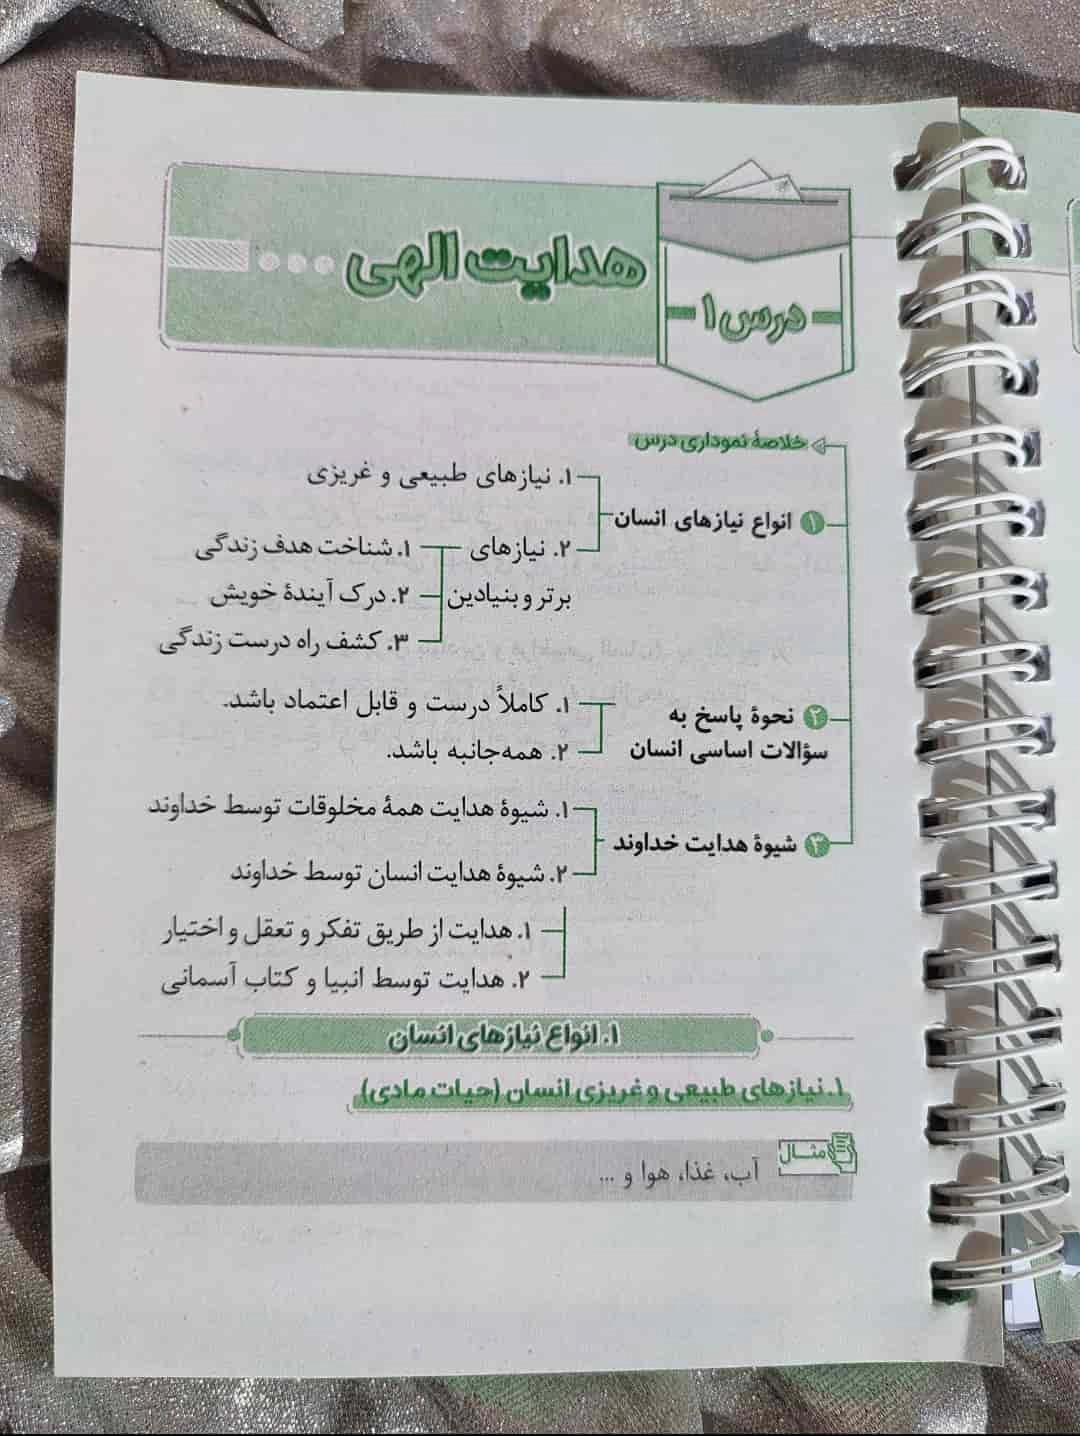 درس ۱
هدایت الهی
خلاصهٔ نموداری درس
۱ انواع نیازهای انسان
۱. نیازهای طبیعی و غریزی
۲. نیازهای
برتر و بنیادین
۱. شناخت هدف زندگی
۲. درک آیندهٔ خویش
۳. کشف راه درست زندگی
۲ نحوهٔ پاسخ به
سؤالات اساسی انسان
۱. کاملاً درست و قابل اعتماد باشد.
۲. همه‌جانبه باشد.
۳ شیوهٔ هدایت خداوند
۱. شیوهٔ هدایت همهٔ مخلوقات توسط خداوند
۲. شیوهٔ هدایت انسان توسط خداوند
۱. هدایت از طریق تفکر و تعقل و اختیار
۲. هدایت توسط انبیا و کتاب آسمانی
۱. انواع نیازهای انسان
۱. نیازهای طبیعی و غریزی انسان (حیات مادی)
مثال
آب، غذا، هوا و ...